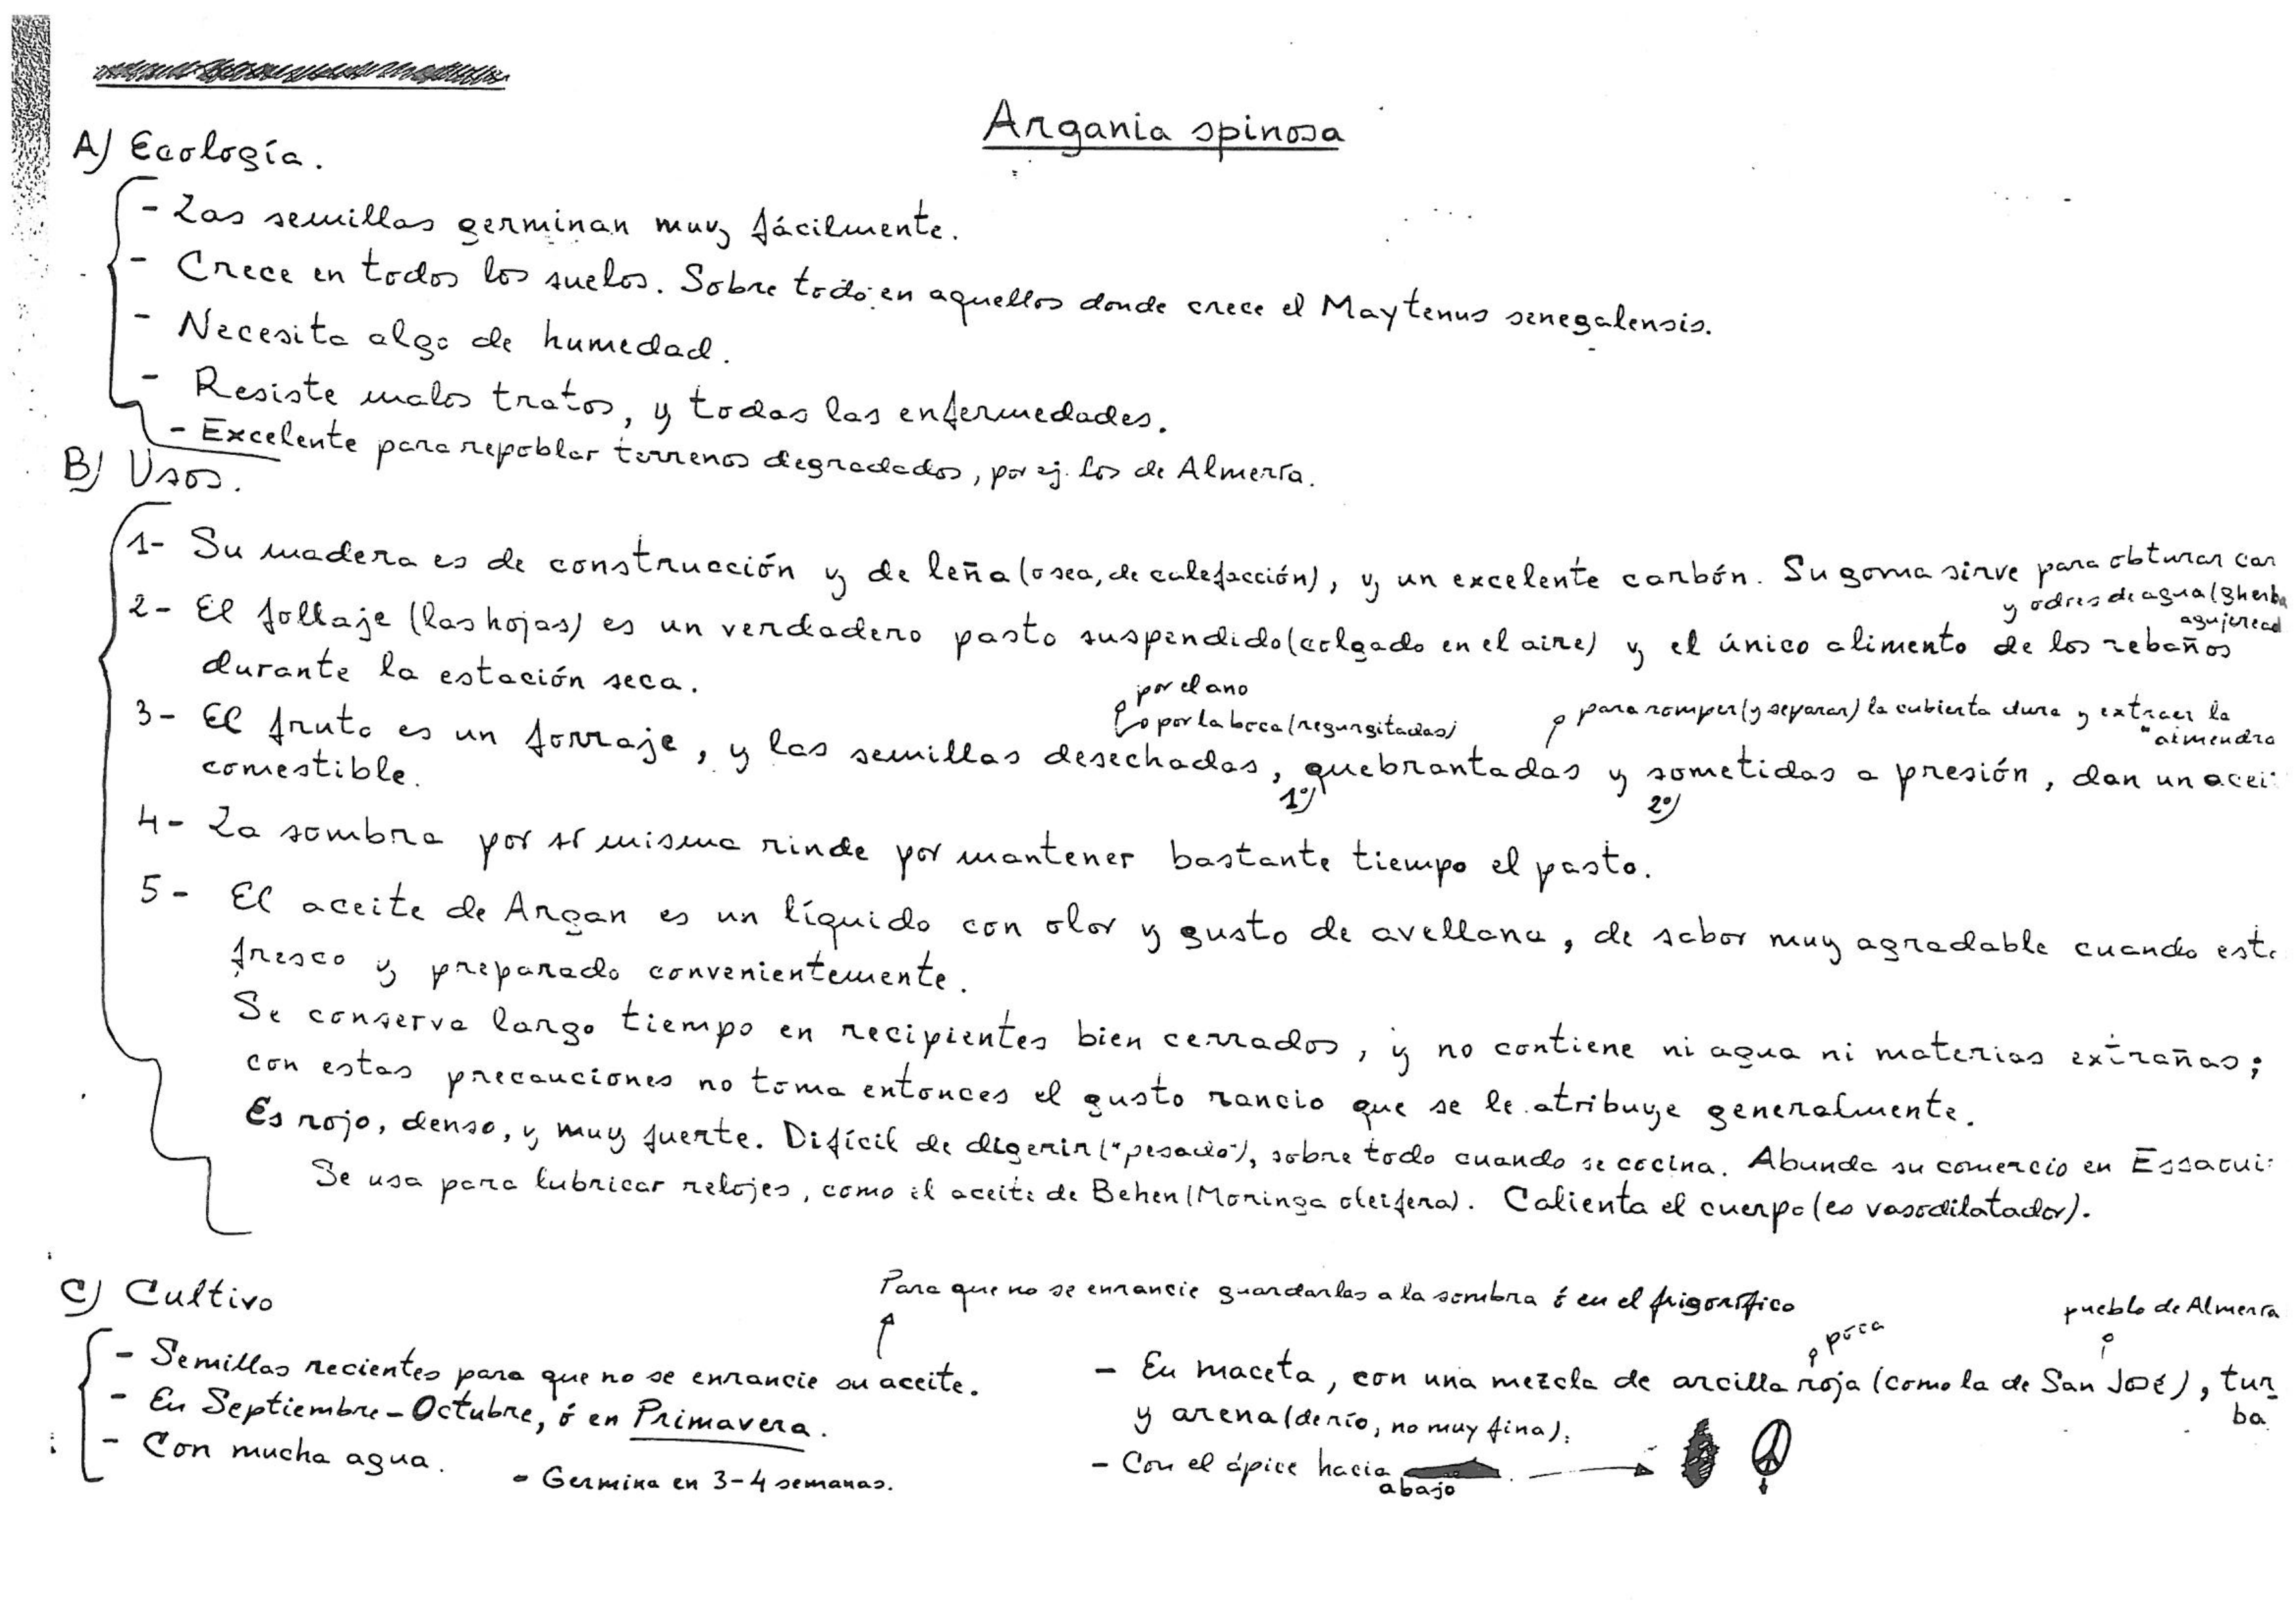 Argania spinosa
A) Ecología.
- Las semillas germinan muy fácilmente.
- Crece en todos los suelos. Sobre todo en aquellos donde crece el Maytenus senegalensis.
- Necesita algo de humedad.
- Resiste malos tratos, y todas las enfermedades.
- Excelente para repoblar terrenos degradados, por ej. los de Almería.
B) Usos.
1- Su madera es de construcción y de leña (o sea, de calefacción), y un excelente carbón. Su goma sirve para obturar
y odres de agua
2- El follaje (las hojas) es un verdadero pasto suspendido (colgado en el aire) y el único alimento de los rebaños
durante la estación seca.
por el ano
o por la boca (regurgitadas)
para romper (y separar) la cubierta dura y extraer la
"almendra
3- El fruto es un forraje, y las semillas desechadas, quebrantadas y sometidas a presión, dan un acei
1º) 2º)
comestible.
4- La sombra por sí misma rinde por mantener bastante tiempo el pasto.
5- El aceite de Argan es un líquido con olor y gusto de avellana, de sabor muy agradable cuando est
fresco y preparado convenientemente.
Se conserva largo tiempo en recipientes bien cerrados, y no contiene ni agua ni materias extrañas;
con estas precauciones no toma entonces el gusto rancio que se le atribuye generalmente.
Es rojo, denso, y muy fuerte. Difícil de digerir ("pesado"), sobre todo cuando se cocina. Abunda su comercio en Essaoui
Se usa para lubricar relojes, como el aceite de Behen (Moringa oleifera). Calienta el cuerpo (es vasodilatador).
C) Cultivo
Para que no se enrancie guardarlas a la sombra ó en el frigorífico
- Semillas recientes para que no se enrancie su aceite.
- En Septiembre-Octubre, ó en Primavera.
- Con mucha agua.
- Germina en 3-4 semanas.
poca
pueblo de Almería
- En maceta, con una mezcla de arcilla roja (como la de San José), tur-
ba
y arena (de río, no muy fina).
- Con el ápice hacia
abajo